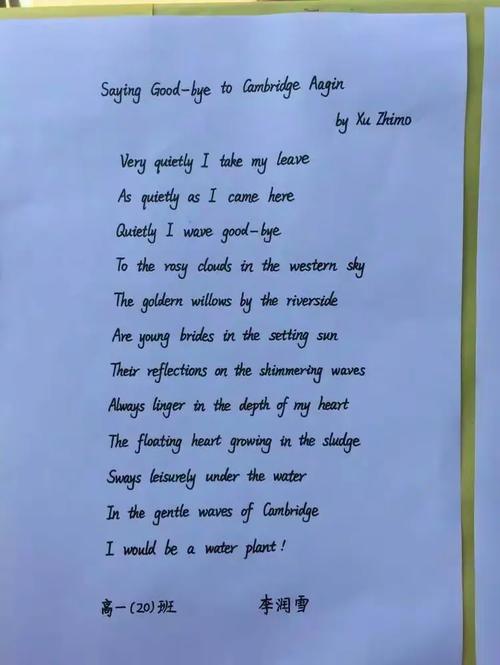 Saying Good-bye to Cambridge Aagin
by Xu Zhimo
Very quietly I take my leave
As quietly as I came here
Quietly I wave good-bye
To the rosy clouds in the western sky
The goldern willows by the riverside
Are young brides in the setting sun
Their reflections on the shimmering waves
Always linger in the depth of my heart
The floating heart growing in the sludge
Sways leisurely under the water
In the gentle waves of Cambridge
I would be a water plant!
高一(20)班 李润雪